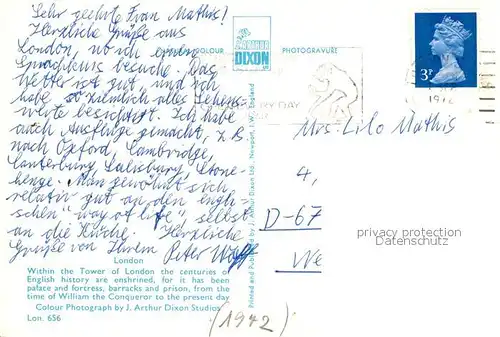 Sehr geehrte Frau Mathis!
Herzliche Grüße aus
London, wo ich einen
Sprachkurs besuche. Das
Wetter ist gut, und ich
habe so ziemlich alles Sehens-
werte besichtigt. Ich habe
auch Ausflüge gemacht, z.B.
nach Oxford, Cambridge,
Canterbury, Salisbury, Stone-
henge. Man gewöhnt sich
relativ gut an den engli-
schen "way of life", selbst
an die Küche. Herzliche
Grüße von Ihrem Peter
London
Within the Tower of London the centuries of
English history are enshrined, for it has been
palace and fortress, barracks and prison, from the
time of William the Conqueror to the present day
Colour Photograph by J. Arthur Dixon Studios
Lon. 656
COLOUR
J. ARTHUR
DIXON
PHOTOGRAVURE
Printed and Published by J. Arthur Dixon Ltd., Newport, I.W., England
DAY
3P
197
Mrs. Lilo Mathis
4,
D-67
We
privacy protection
DatenSchutz
(1972)